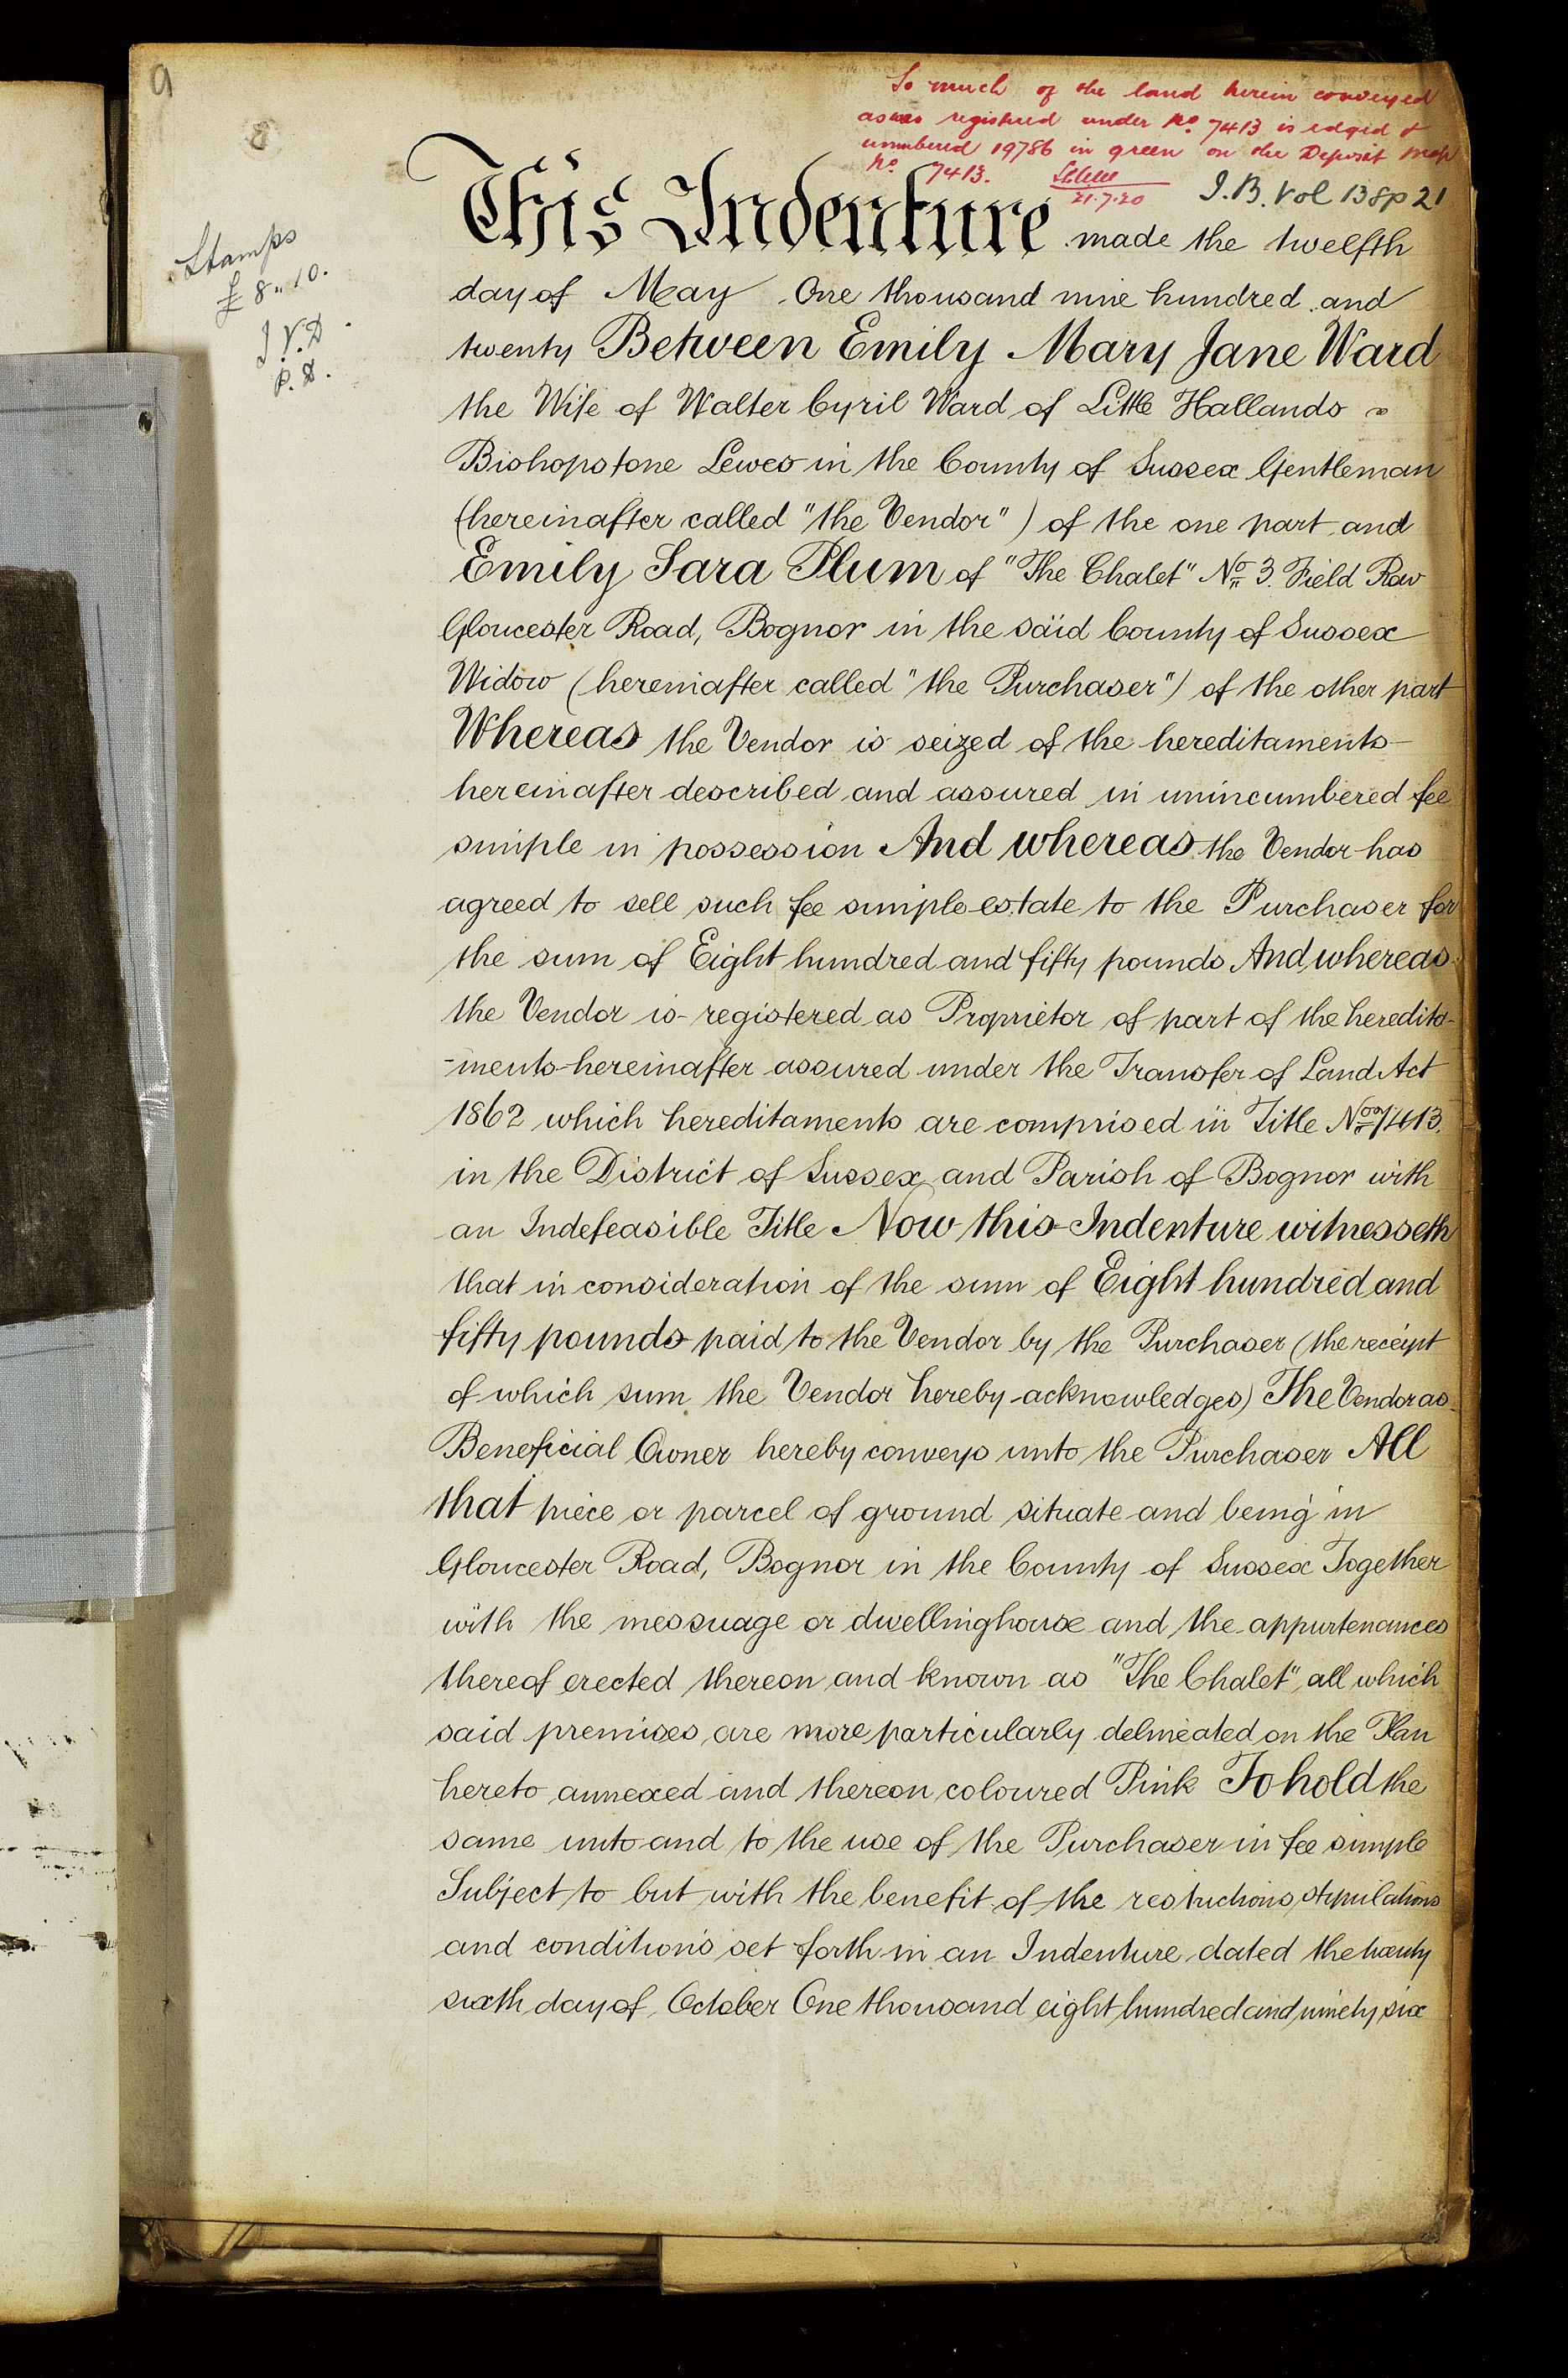 9
8
So much of the land herein conveyed
as was registered under No. 7413 is edged &
numbered 19786 in green on the Deposit Map
No. 7413.
21.7.20
I.B. Vol 138 p 21
Stamps
£8"10.
I.V.D.
P.D.
This Indenture made the twelfth
day of May One thousand nine hundred and
twenty Between Emily Mary Jane Ward
the Wife of Walter Cyril Ward of Little Hallands
Bishopstone Lewes in the County of Sussex Gentleman
(hereinafter called "the Vendor") of the one part and
Emily Sara Plum of "The Chalet" No. 3. Field Row
Gloucester Road, Bognor in the said County of Sussex
Widow (hereinafter called "the Purchaser") of the other part
Whereas the Vendor is seized of the hereditaments
hereinafter described and assured in unincumbered fee
simple in possession And whereas the Vendor has
agreed to sell such fee simple estate to the Purchaser for
the sum of Eight hundred and fifty pounds And whereas
the Vendor is registered as Proprietor of part of the heredita-
-ments hereinafter assured under the Transfer of Land Act
1862 which hereditaments are comprised in Title No. 7413.
in the District of Sussex and Parish of Bognor with
an Indefeasible Title Now this Indenture witnesseth
that in consideration of the sum of Eight hundred and
fifty pounds paid to the Vendor by the Purchaser (the receipt
of which sum the Vendor hereby acknowledges) The Vendor as
Beneficial Owner hereby conveys unto the Purchaser All
that piece or parcel of ground situate and being in
Gloucester Road, Bognor in the County of Sussex Together
with the messuage or dwellinghouse and the appurtenances
thereof erected thereon and known as "The Chalet", all which
said premises are more particularly delineated on the Plan
hereto annexed and thereon coloured Pink To hold the
same unto and to the use of the Purchaser in fee simple
Subject to but with the benefit of the restrictions, stipulations
and conditions set forth in an Indenture dated the twenty
sixth day of October One thousand eight hundred and ninety six